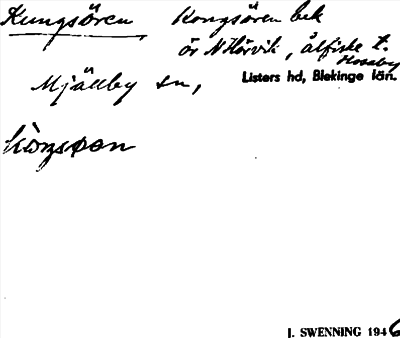 Kungsören Kongsören bek
ör N Hörvik, ålfiske t.
Hosaby
Mjällby sn, Listers hd, Blekinge län.
kòŋsøən
J. SWENNING 1946